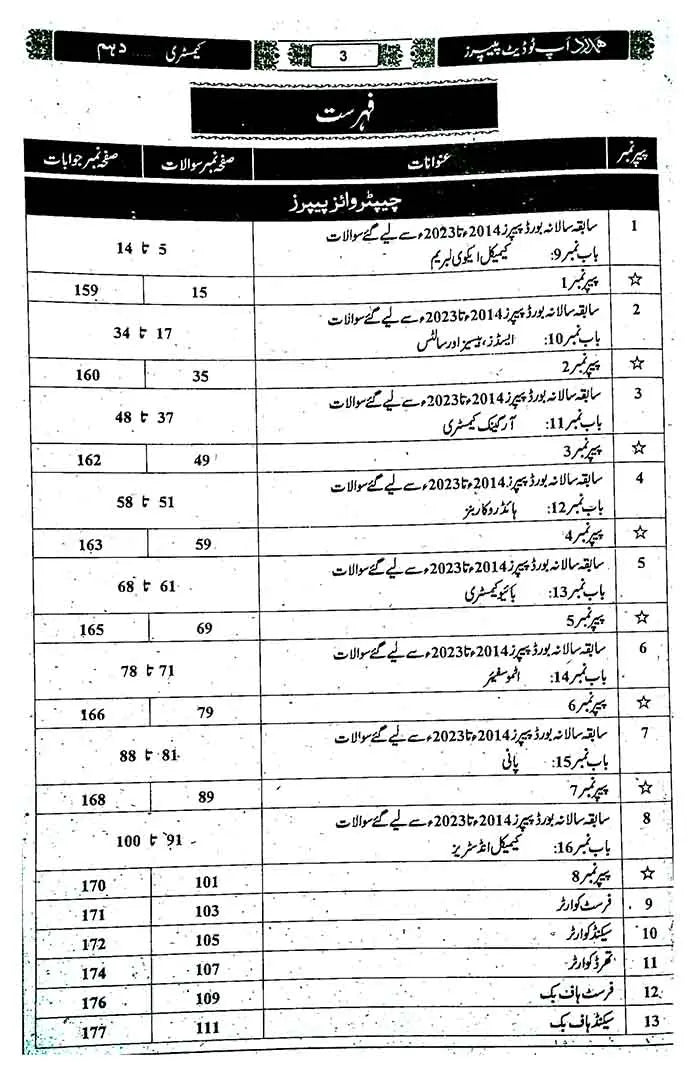 ہمدرد اَپ ٹُو ڈیٹ پیپرز 3 کیمسٹری ..... دہم
فہرست
پیپر نمبر عنوانات صفحہ نمبر سوالات صفحہ نمبر جوابات
چیپٹر وائز پیپرز
1 سابقہ سالانہ بورڈ پیپرز 2014ء تا 2023ء سے لیے گئے سوالات
باب نمبر 9: کیمیکل ایکوی لبریم 5 تا 14
☆ پیپر نمبر 1 15 159
2 سابقہ سالانہ بورڈ پیپرز 2014ء تا 2023ء سے لیے گئے سوالات
باب نمبر 10: ایسڈز، بیسیز اور سالٹس 17 تا 34
☆ پیپر نمبر 2 35 160
3 سابقہ سالانہ بورڈ پیپرز 2014ء تا 2023ء سے لیے گئے سوالات
باب نمبر 11: آرگینک کیمسٹری 37 تا 48
☆ پیپر نمبر 3 49 162
4 سابقہ سالانہ بورڈ پیپرز 2014ء تا 2023ء سے لیے گئے سوالات
باب نمبر 12: ہائڈروکاربنز 51 تا 58
☆ پیپر نمبر 4 59 163
5 سابقہ سالانہ بورڈ پیپرز 2014ء تا 2023ء سے لیے گئے سوالات
باب نمبر 13: بائیو کیمسٹری 61 تا 68
☆ پیپر نمبر 5 69 165
6 سابقہ سالانہ بورڈ پیپرز 2014ء تا 2023ء سے لیے گئے سوالات
باب نمبر 14: اٹموسفیئر 71 تا 78
☆ پیپر نمبر 6 79 166
7 سابقہ سالانہ بورڈ پیپرز 2014ء تا 2023ء سے لیے گئے سوالات
باب نمبر 15: پانی 81 تا 88
☆ پیپر نمبر 7 89 168
8 سابقہ سالانہ بورڈ پیپرز 2014ء تا 2023ء سے لیے گئے سوالات
باب نمبر 16: کیمیکل انڈسٹریز 91 تا 100
☆ پیپر نمبر 8 101 170
9 فرسٹ کوارٹر 103 171
10 سیکنڈ کوارٹر 105 172
11 تھرڈ کوارٹر 107 174
12 فرسٹ ہاف بک 109 176
13 سیکنڈ ہاف بک 111 177